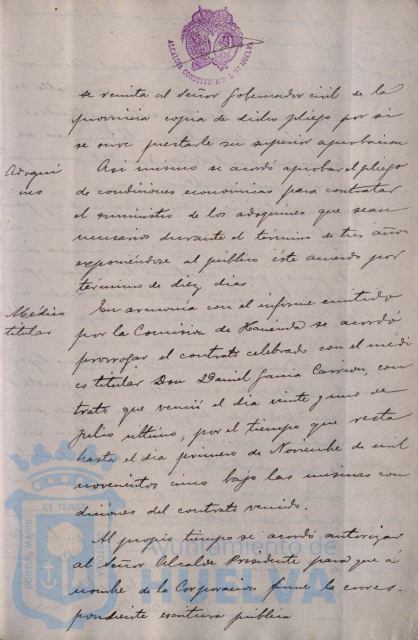 ALCALDIA CONSTITUCIONAL DE HUELVA
se remita al Señor Gobernador civil de la
provincia copia de dicho pliego por si
se sirve prestarle su superior aprobacion
Adoqui
nes
Asi mismo se acordó aprobar el pliego
de condiciones economicas para contratar
el suministro de los adoquines que sean
necesarios durante el término de tres años
exponiéndose al publico éste acuerdo por
término de diez dias.
Médico
titular
En armonía con el informe emitido
por la Comision de Hacienda se acordó
prorrogar el contrato celebrado con el médi
co titular Don Daniel Garcia Carrion, con
trato que venció el dia veinte y uno de
Julio ultimo, por el tiempo que resta
hasta el dia primero de Noviembre de mil
novecientos cinco bajo las mismas con
diciones del contrato vencido.
Al propio tiempo se acordó autorizar
al Señor Alcalde Presidente para que á
nombre de la Corporacion firme la corres-
pondiente escritura pública
Ayuntamiento de
HUELVA